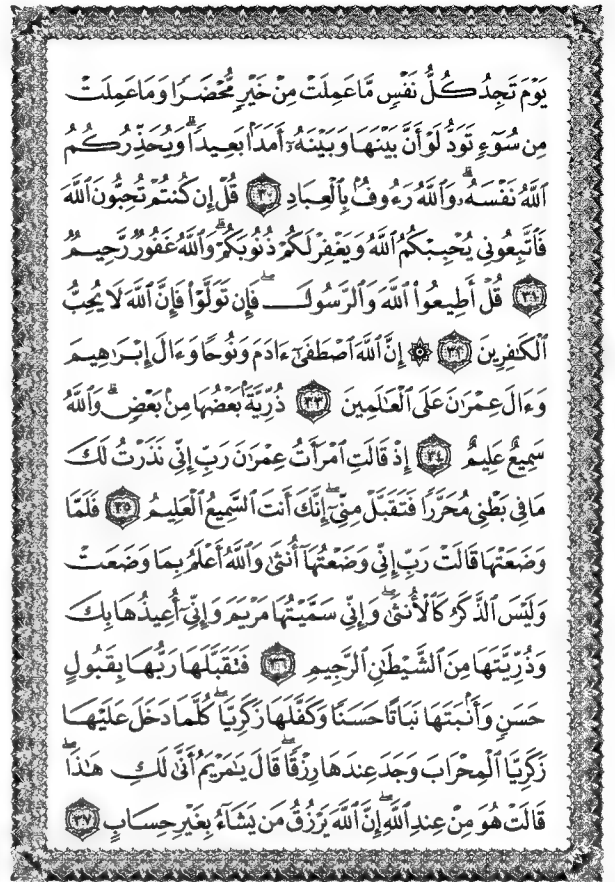 يَوْمَ تَجِدُ كُلُّ نَفْسٍ مَّا عَمِلَتْ مِنْ خَيْرٍ مُّحْضَرًا وَمَا عَمِلَتْ
مِن سُوٓءٍ تَوَدُّ لَوْ أَنَّ بَيْنَهَا وَبَيْنَهُۥٓ أَمَدَۢا بَعِيدًا ۗ وَيُحَذِّرُكُمُ
ٱللَّهُ نَفْسَهُۥ ۗ وَٱللَّهُ رَءُوفٌۢ بِٱلْعِبَادِ ٣٠ قُلْ إِن كُنتُمْ تُحِبُّونَ ٱللَّهَ
فَٱتَّبِعُونِى يُحْبِبْكُمُ ٱللَّهُ وَيَغْفِرْ لَكُمْ ذُنُوبَكُمْ ۗ وَٱللَّهُ غَفُورٌ رَّحِيمٌ
٣١ قُلْ أَطِيعُوا۟ ٱللَّهَ وَٱلرَّسُولَ ۖ فَإِن تَوَلَّوْا۟ فَإِنَّ ٱللَّهَ لَا يُحِبُّ
ٱلْكَٰفِرِينَ ٣٢ ۞ إِنَّ ٱللَّهَ ٱصْطَفَىٰٓ ءَادَمَ وَنُوحًا وَءَالَ إِبْرَٰهِيمَ
وَءَالَ عِمْرَٰنَ عَلَى ٱلْعَٰلَمِينَ ٣٣ ذُرِّيَّةَۢ بَعْضُهَا مِنۢ بَعْضٍ ۗ وَٱللَّهُ
سَمِيعٌ عَلِيمٌ ٣٤ إِذْ قَالَتِ ٱمْرَأَتُ عِمْرَٰنَ رَبِّ إِنِّى نَذَرْتُ لَكَ
مَا فِى بَطْنِى مُحَرَّرًا فَتَقَبَّلْ مِنِّىٓ ۖ إِنَّكَ أَنتَ ٱلسَّمِيعُ ٱلْعَلِيمُ ٣٥ فَلَمَّا
وَضَعَتْهَا قَالَتْ رَبِّ إِنِّى وَضَعْتُهَآ أُنثَىٰ وَٱللَّهُ أَعْلَمُ بِمَا وَضَعَتْ
وَلَيْسَ ٱلذَّكَرُ كَٱلْأُنثَىٰ ۖ وَإِنِّى سَمَّيْتُهَا مَرْيَمَ وَإِنِّىٓ أُعِيذُهَا بِكَ
وَذُرِّيَّتَهَا مِنَ ٱلشَّيْطَٰنِ ٱلرَّجِيمِ ٣٦ فَتَقَبَّلَهَا رَبُّهَا بِقَبُولٍ
حَسَنٍ وَأَنۢبَتَهَا نَبَاتًا حَسَنًا وَكَفَّلَهَا زَكَرِيَّا ۖ كُلَّمَا دَخَلَ عَلَيْهَا
زَكَرِيَّا ٱلْمِحْرَابَ وَجَدَ عِندَهَا رِزْقًا ۖ قَالَ يَٰمَرْيَمُ أَنَّىٰ لَكِ هَٰذَا ۖ
قَالَتْ هُوَ مِنْ عِندِ ٱللَّهِ ۖ إِنَّ ٱللَّهَ يَرْزُقُ مَن يَشَآءُ بِغَيْرِ حِسَابٍ ٣٧